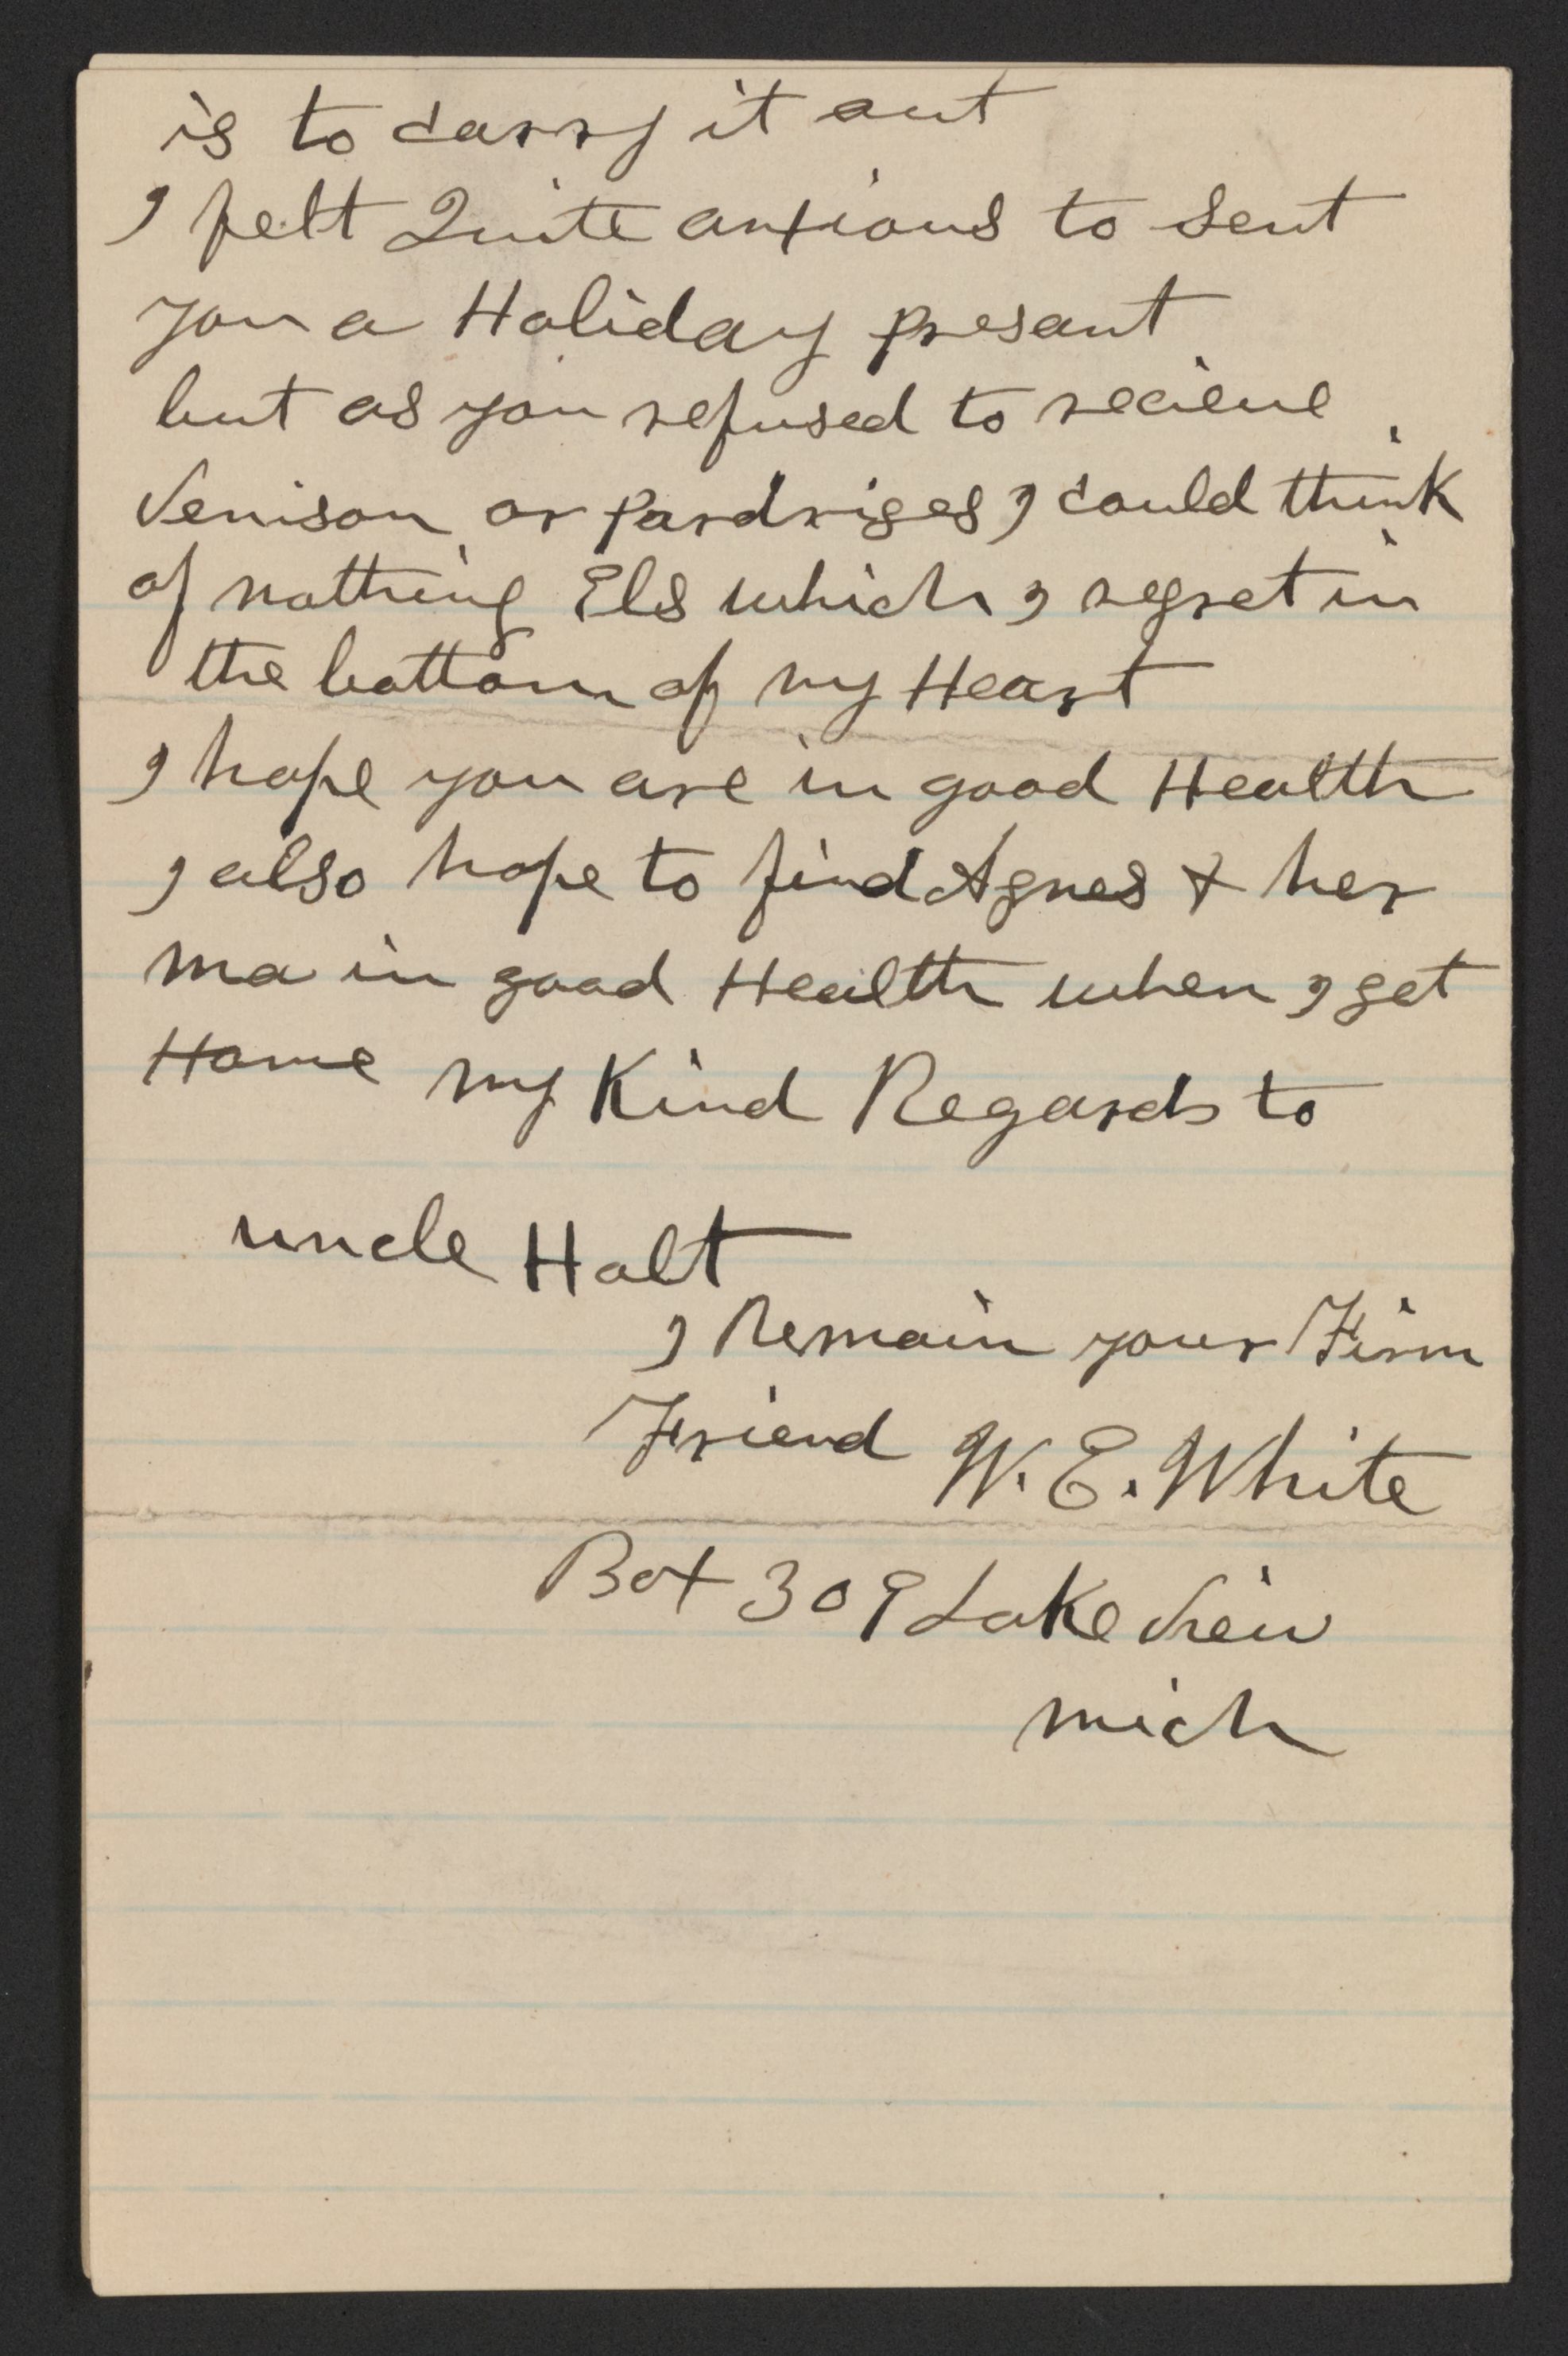 is to carry it out
I felt Quite anxious to sent
you a Holiday presant
but as you refused to recieve
Venison or Pardriges I could think
of nothing Els which I regret in
the bottom of my Heart
I hope you are in good Health
I also hope to find Agnes & her
ma in good Health when I get
Home my Kind Regards to
uncle Holt
I Remain your Firm
Friend W. E. White
Box 309 Lake View
mich